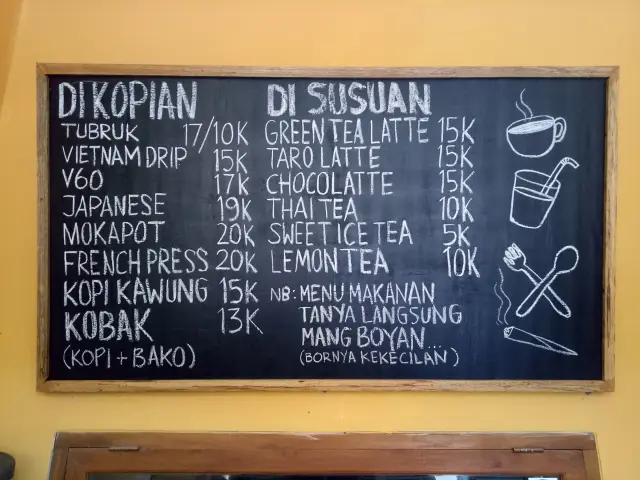 DI KOPIAN
TUBRUK 17/10K
VIETNAM DRIP 15K
V60 17K
JAPANESE 19K
MOKAPOT 20K
FRENCH PRESS 20K
KOPI KAWUNG 15K
KOBAK 13K
(KOPI + BAKO)
DI SUSUAN
GREEN TEA LATTE 15K
TARO LATTE 15K
CHOCOLATTE 15K
THAI TEA 10K
SWEET ICE TEA 5K
LEMON TEA 10K
NB: MENU MAKANAN
TANYA LANGSUNG
MANG BOYAN...
(BORNYA KEKECILAN)